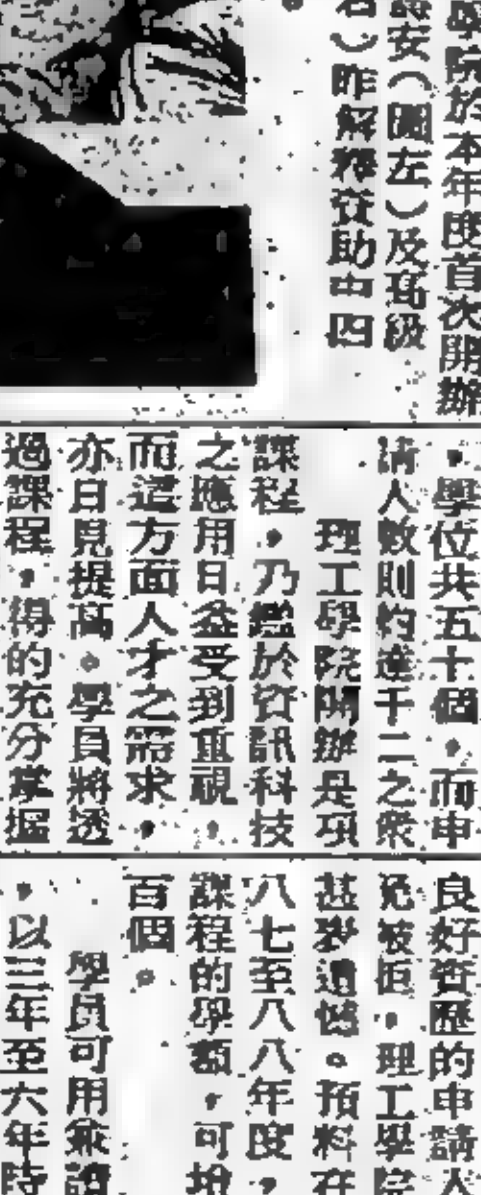 學院於本年度首次開辦
安（圖左）及高級
）昨解釋資助由四
，學位共五十個，而申
請人數則約達千二之衆
理工學院開辦是項
課程，乃鑑於資訊科技
之應用日益受到重視，
而這方面人才之需求，
亦日見提高。學員將透
過課程，得的充分掌握
良好資歷的申請人
被拒，理工學院
甚感遺憾。預料在
八七至八八年度，
課程的學額，可增
百個。
學員可用兼讀
，以三年至六年時